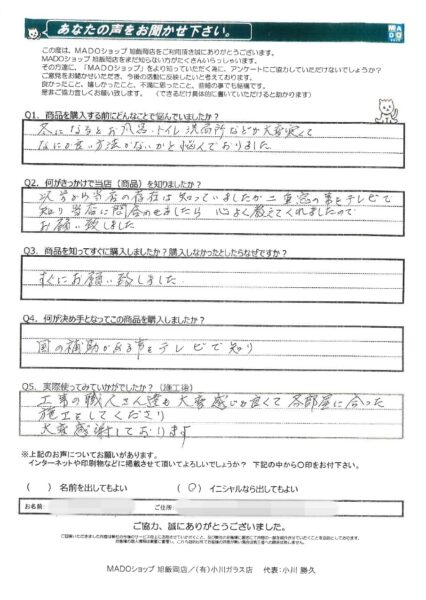 あなたの声をお聞かせ下さい。
MADO
この度は、MADOショップ 旭飯岡店をご利用頂き誠にありがとうございます。
MADOショップ 旭飯岡店をまだ知らない方がたくさんいらっしゃいます。
その方達に、「MADOショップ」をより知っていただく為に、アンケートにご協力していただけないでしょうか？
ご意見をお聞かせいただき、今後の活動に反映したいと考えております。
良かったこと、嬉しかったこと、不満に思ったこと、些細の事でも結構です。
是非ご協力宜しくお願い致します。 （できるだけ具体的に書いていただけると助かります）
Q1. 商品を購入する前にどんなことで悩んでいましたか？
冬になるとお風呂・トイレ 洗面所などが大変寒くて
なにか良い方法がないかと悩んでおりました
Q2. 何がきっかけで当店（商品）を知りましたか？
以前から当店の存在は知っていましたが二重窓の事をテレビで
知り当店に問合わせましたら 心よく教えてくれましたので
お願い致しました
Q3. 商品を知ってすぐに購入しましたか？購入しなかったとしたらなぜですか？
すぐにお願い致しました
Q4. 何が決め手となってこの商品を購入しましたか？
国の補助が出る事をテレビで知り
Q5. 実際使ってみていかがでしたか？（施工後）
工事の職人さん達も大変感じが良くて 各部屋に合った
施工をしてくださり
大変感謝しております
※上記のお声についてお願いがあります。
インターネットや印刷物などに掲載させて頂いてよろしいでしょうか？ 下記の中から〇印をお付下さい。
（ ） 名前を出してもよい （〇） イニシャルなら出してもよい
お名前: ご住所:
ご協力、誠にありがとうございました。
MADOショップ 旭飯岡店／(有)小川ガラス店 代表：小川 勝久